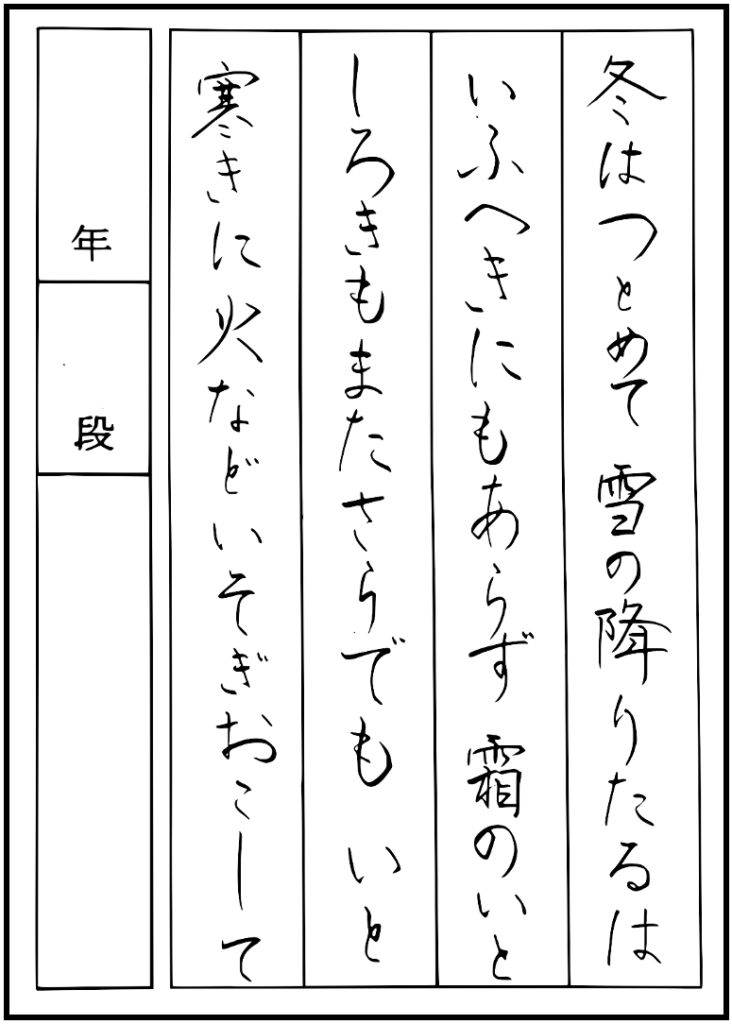 冬はつとめて 雪の降りたるは
いふへきにもあらず 霜のいと
しろきもまたさらでも いと
寒きに火などいそぎおこして
年
段